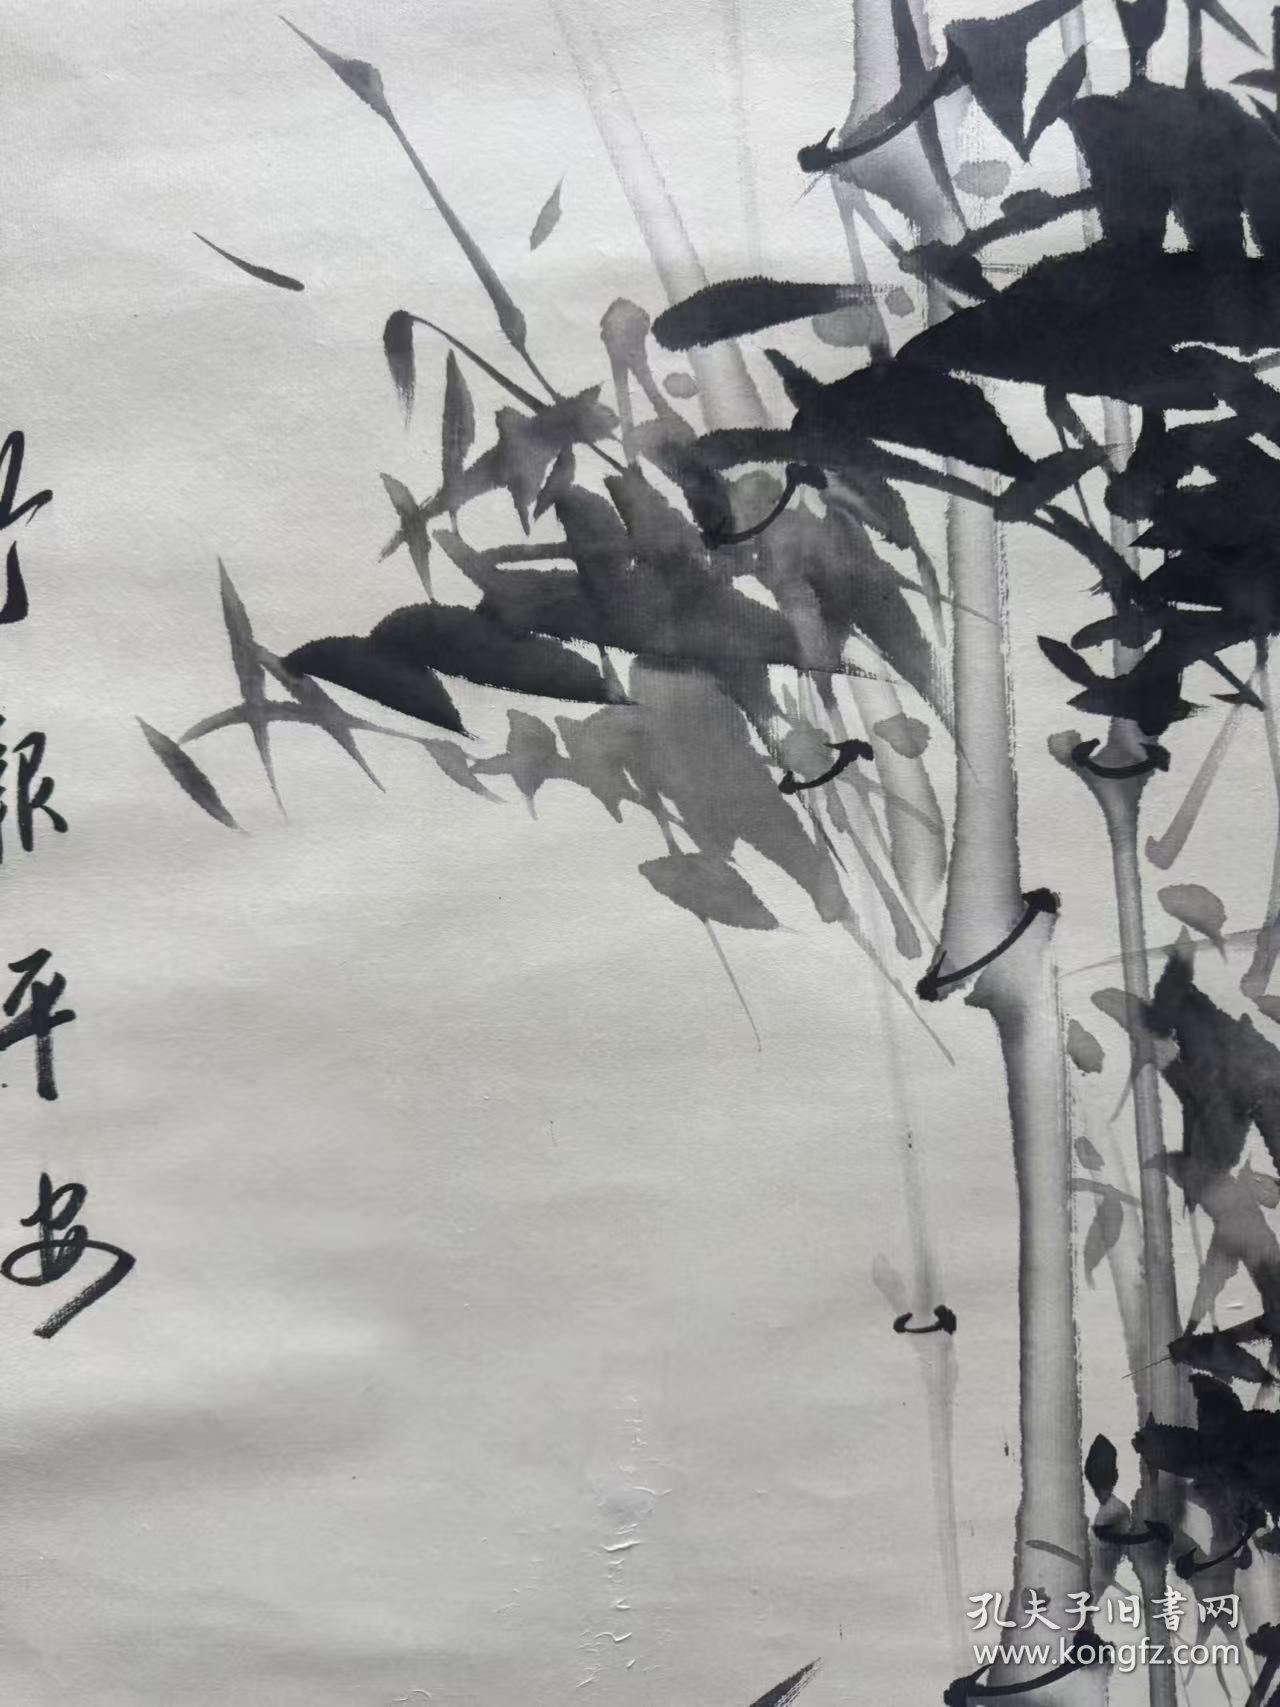 竹
報
平
安
孔夫子旧書网
www.kongfz.com